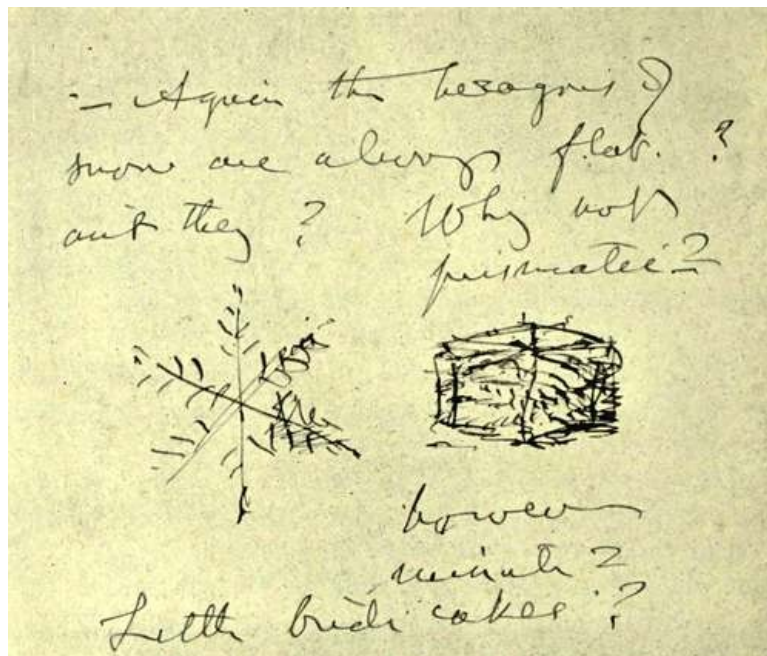 – Again the hexagons of
snow are always flat. ?
ain't they ? Why not
prismatic ?
however
minute ?
Little bride cakes ?